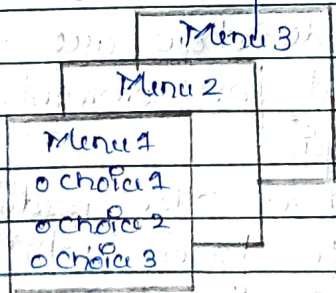 Menu 3
Menu 2
Menu 1
o choice 1
o choice 2
o choice 3